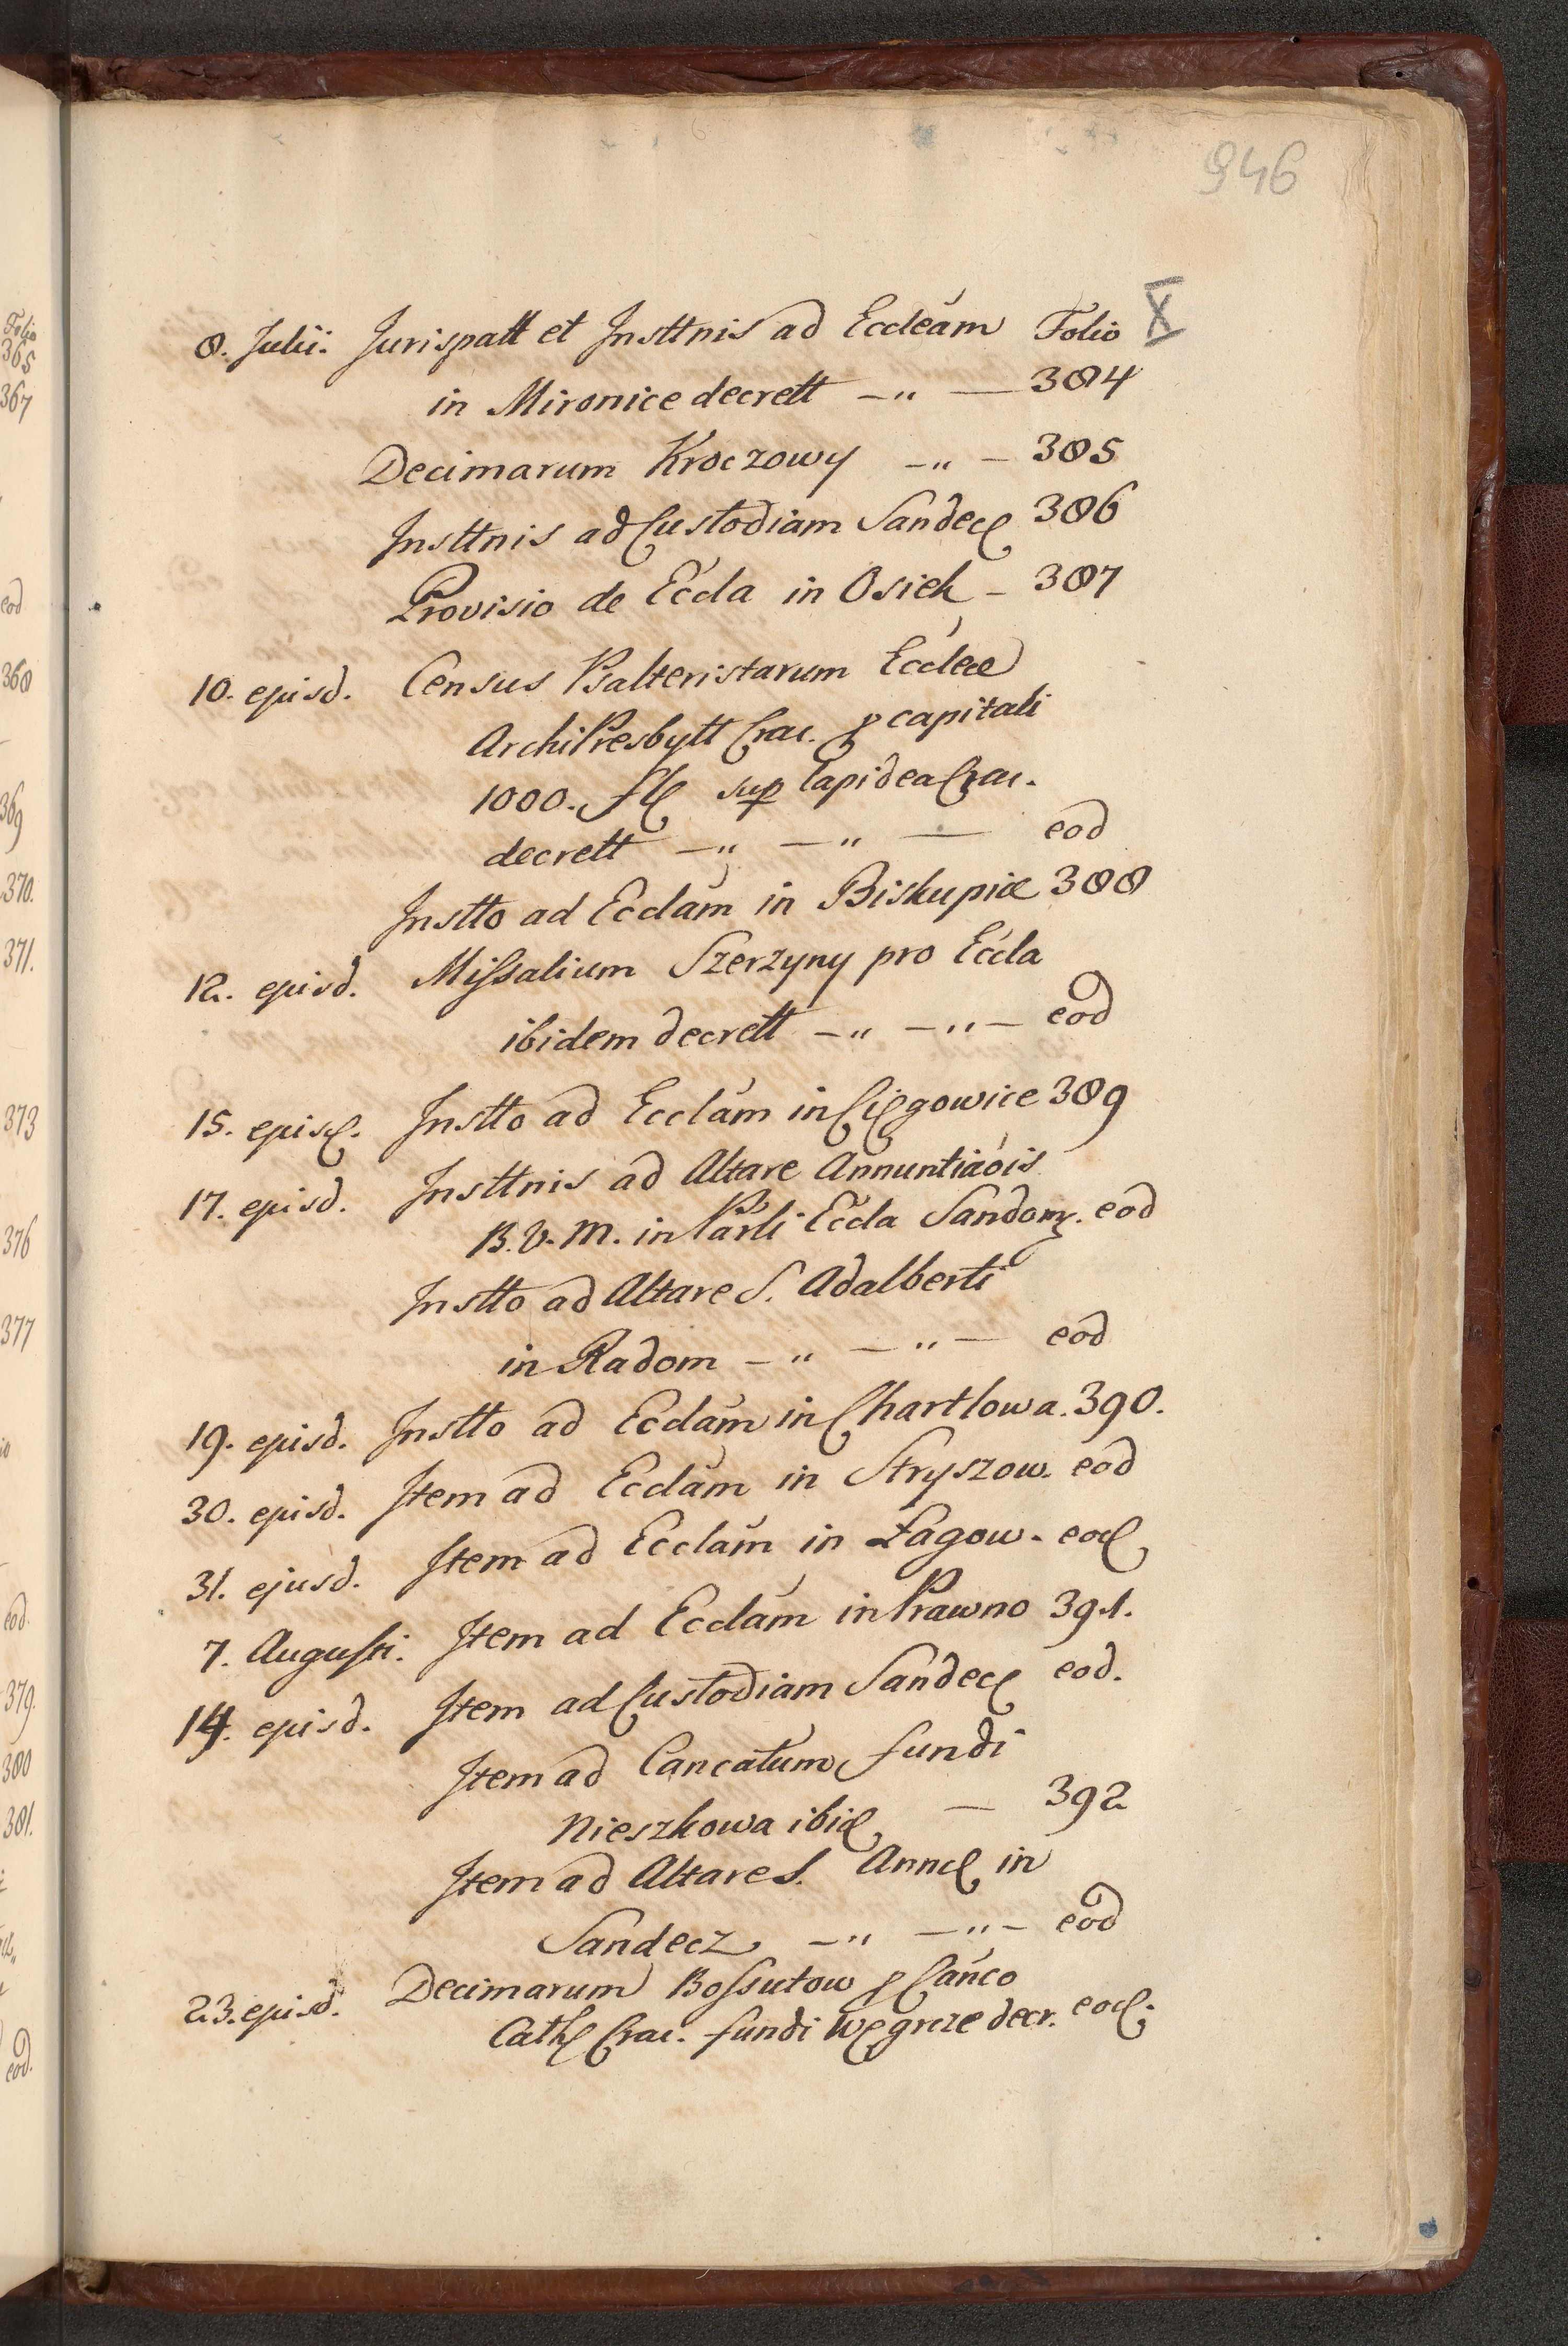 946
X
8. Julii. Jurispatt et Insttnis ad Eccleam Folio
in Mironice decrett —„ — 384
Decimarum Kroczowy —„ — 385
Insttnis ad Custodiam Sandec 386
Provisio de Eccla in Osiek – 387
10. ejusd. Census Psalteristarum Eccleae
ArchiPresbytt Crac. p capitali
1000. fl sup lapidea Crac.
decrett —„ —„ — eod
Instto ad Ecclam in Biskupice 388
12. ejusd. Missalium Szerzyny pro Eccla
ibidem decrett —„ —„— eod
15. ejusd. Instto ad Ecclam in Cięgowice 389
17. ejusd. Insttnis ad Altare Annuntiaois
B. V. M. in Parli Eccla Sandom. eod
Instto ad Altare S. Adalberti
in Radom —„ —„— eod
19. ejusd. Instto ad Ecclam in Chartlowa. 390.
30. ejusd. Item ad Ecclam in Stryszow. eod
31. ejusd. Item ad Ecclam in Łagow. eod
7. Augusti. Item ad Ecclam in Prawno 391.
14. ejusd. Item ad Custodiam Sandec eod.
Item ad Cancatum fundi
Nieszkowa ibid — 392
Item ad Altare S. Annae in
Sandecz —„ —„— eod
23. ejusd. Decimarum Bossutow p Canco
Cath Crac. fundi Węgrze decr. eod.
Folio
365
367
eod
368
369
370.
371.
373
376
377
eod.
379.
380
381.
eod.